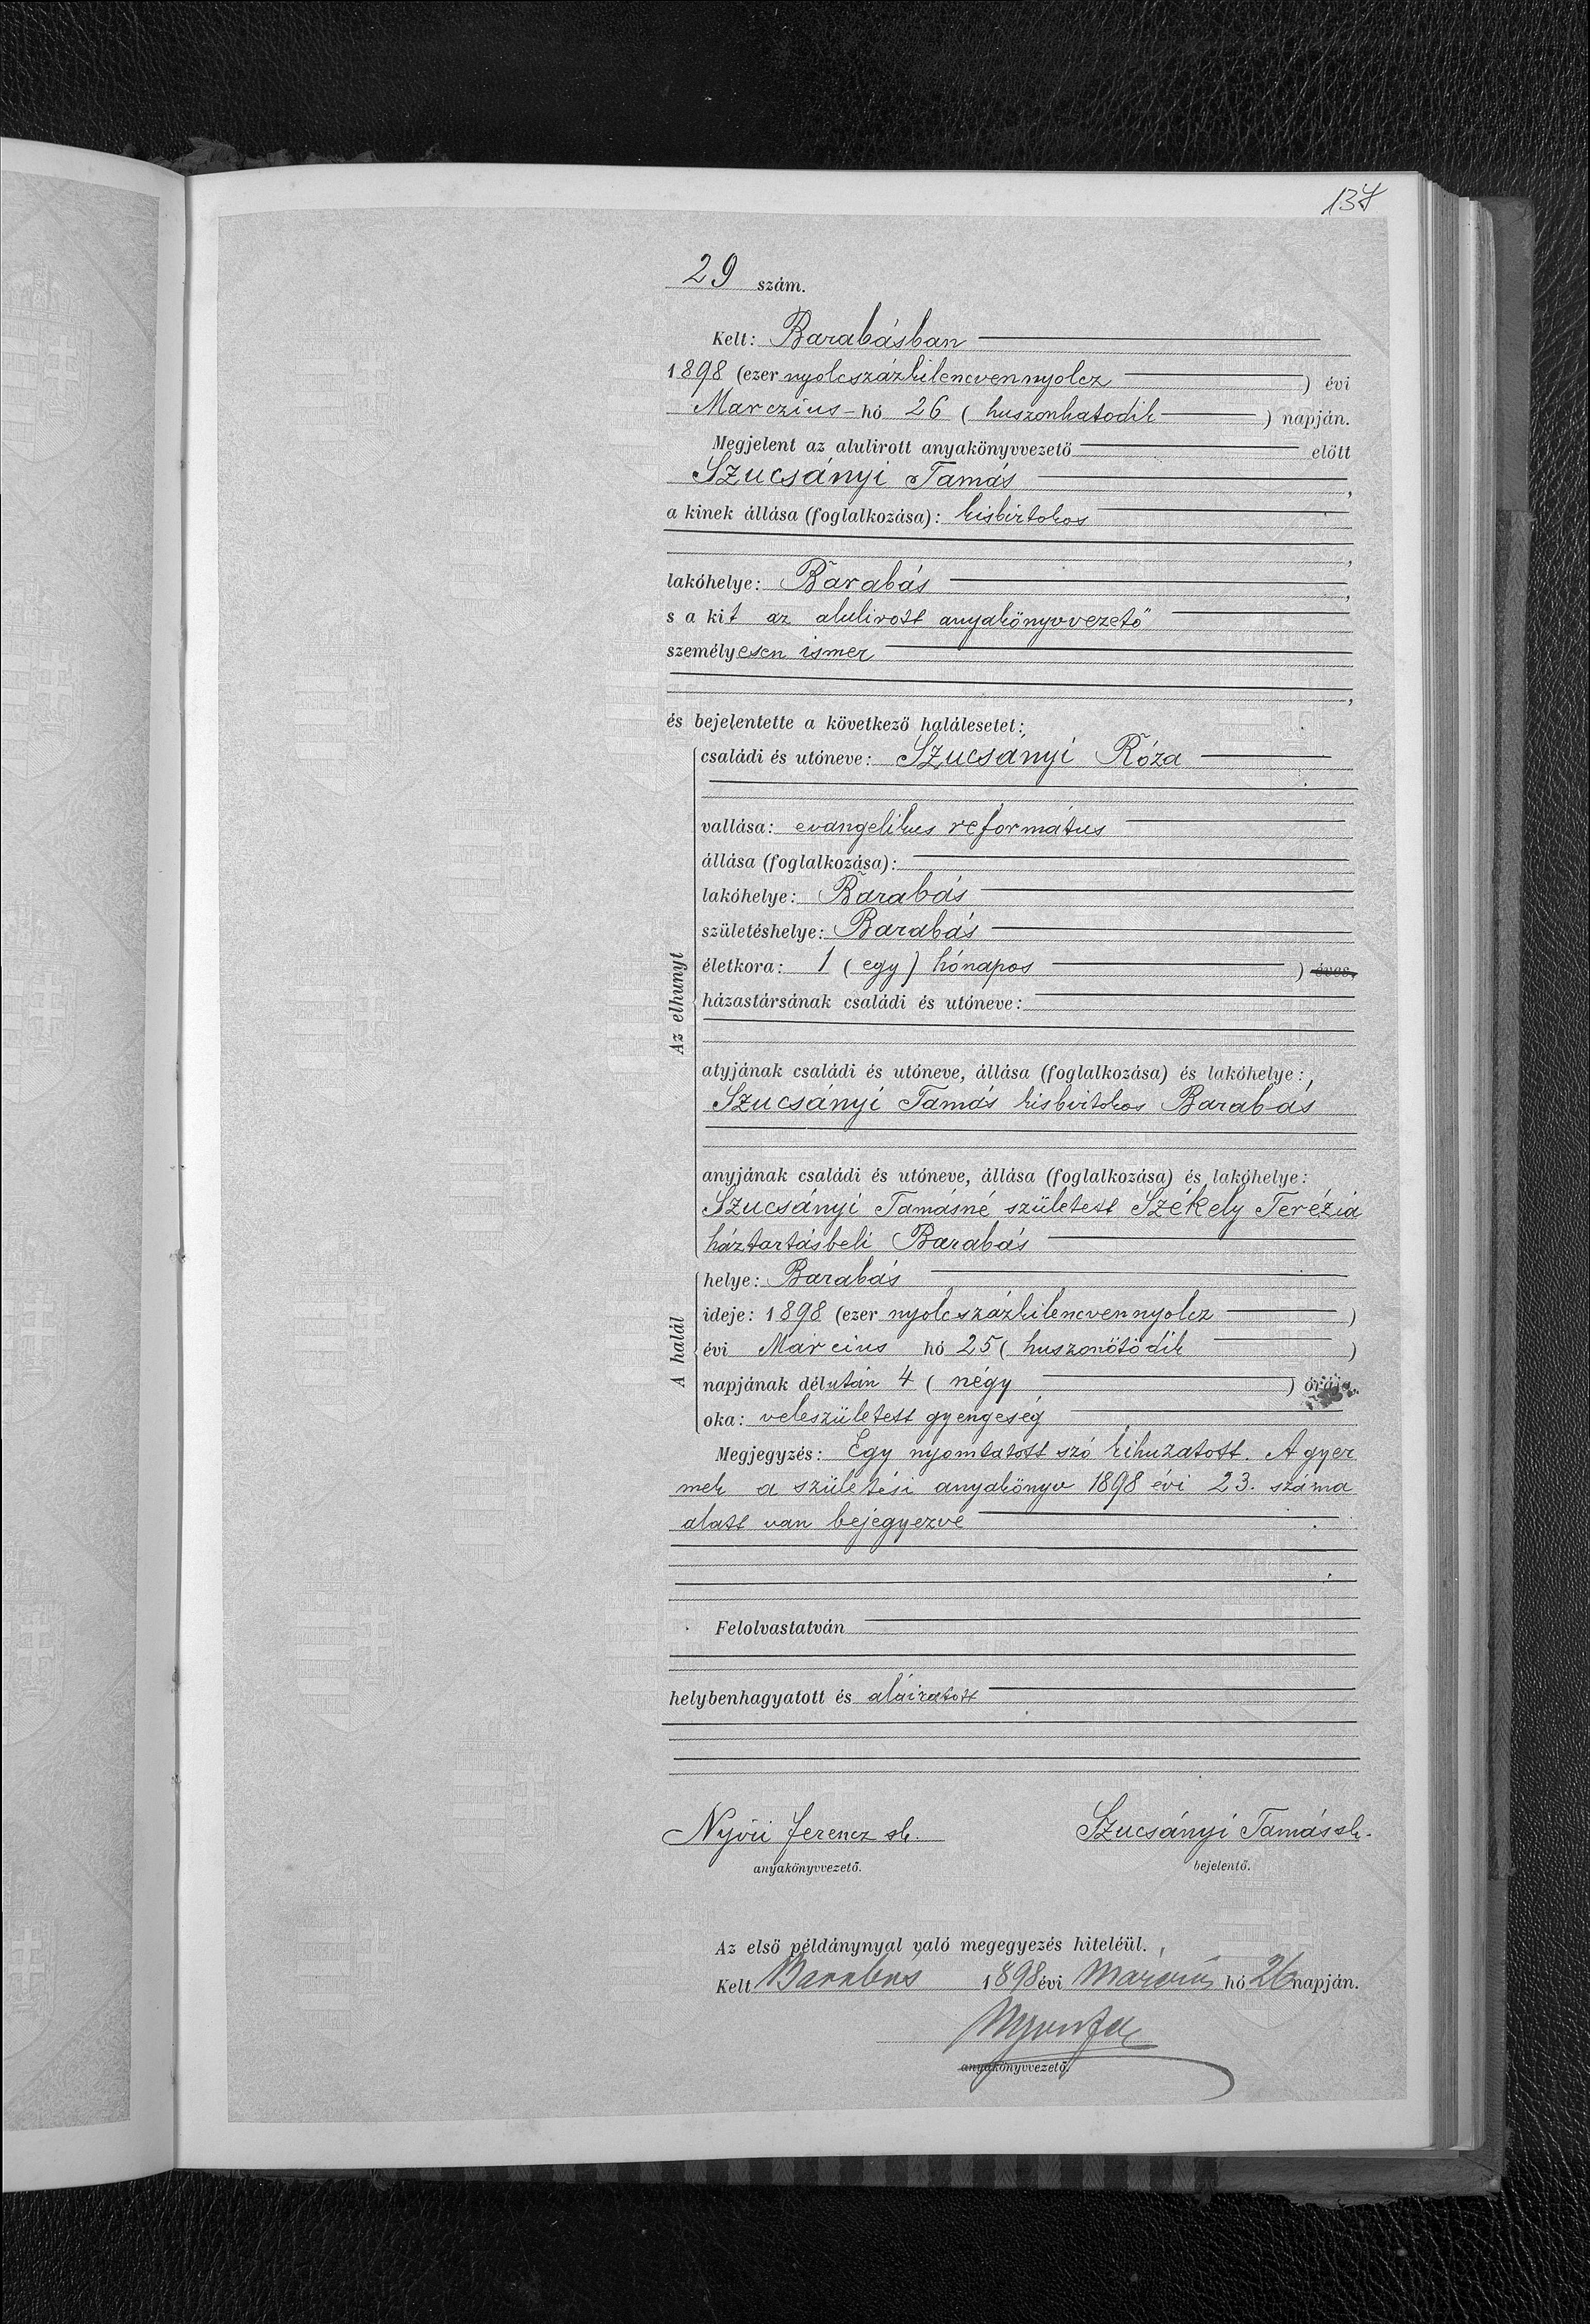 29 szám.
Kelt: Barabásban
1898 (ezer nyolcszázkilencvennyolcz ) évi
Marczius hó 26 ( huszonhatodik ) napján.
Megjelent az alulirott anyakönyvvezető előtt
Szucsányi Tamás ,
a kinek állása (foglalkozása): kisbirtokos
,
lakóhelye: Barabás ,
s a kit az alulirott anyakönyvvezető
személyesen ismer
,
és bejelentette a következő halálesetet:
Az elhunyt
családi és utóneve: Szucsányi Róza
vallása: evangelikus református
állása (foglalkozása):
lakóhelye: Barabás
születéshelye: Barabás
életkora: 1 ( egy ) hónapos ) éves,
házastársának családi és utóneve:
atyjának családi és utóneve, állása (foglalkozása) és lakóhelye:
Szucsányi Tamás kisbirtokos Barabás
anyjának családi és utóneve, állása (foglalkozása) és lakóhelye:
Szucsányi Tamásné született Székely Terézia
háztartásbeli Barabás
A halál
helye: Barabás
ideje: 1898 (ezer nyolcszázkilencvennyolcz )
évi Március hó 25 ( huszonötödik )
napjának délután 4 ( négy ) órája
oka: veleszületett gyengeség
Megjegyzés: Egy nyomtatott szó kihuzatott. A gyer
mek a születési anyakönyv 1898 évi 23. száma
alatt van bejegyezve
Felolvastatván
helybenhagyatott és aláiratott
Nyiri Ferencz sk. Szucsányi Tamás sk.
anyakönyvvezető. bejelentő.
Az első példánynyal való megegyezés hiteléül.
Kelt Barabás 1898 évi Március hó 26 napján.
anyakönyvvezető.